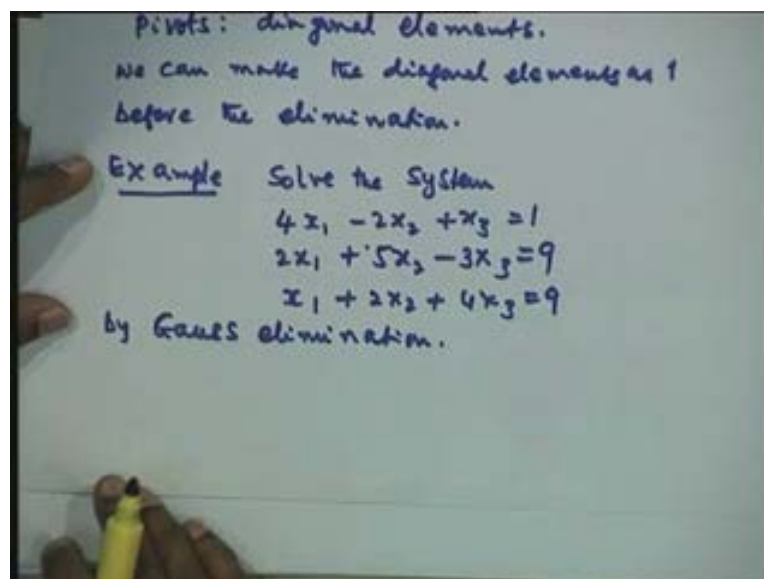 Pivots: diagonal elements.
We can make the diagonal elements as 1
before the elimination.
Example Solve the System
4x₁ - 2x₂ + x₃ = 1
2x₁ + 5x₂ - 3x₃ = 9
x₁ + 2x₂ + 4x₃ = 9
by Gauss elimination.